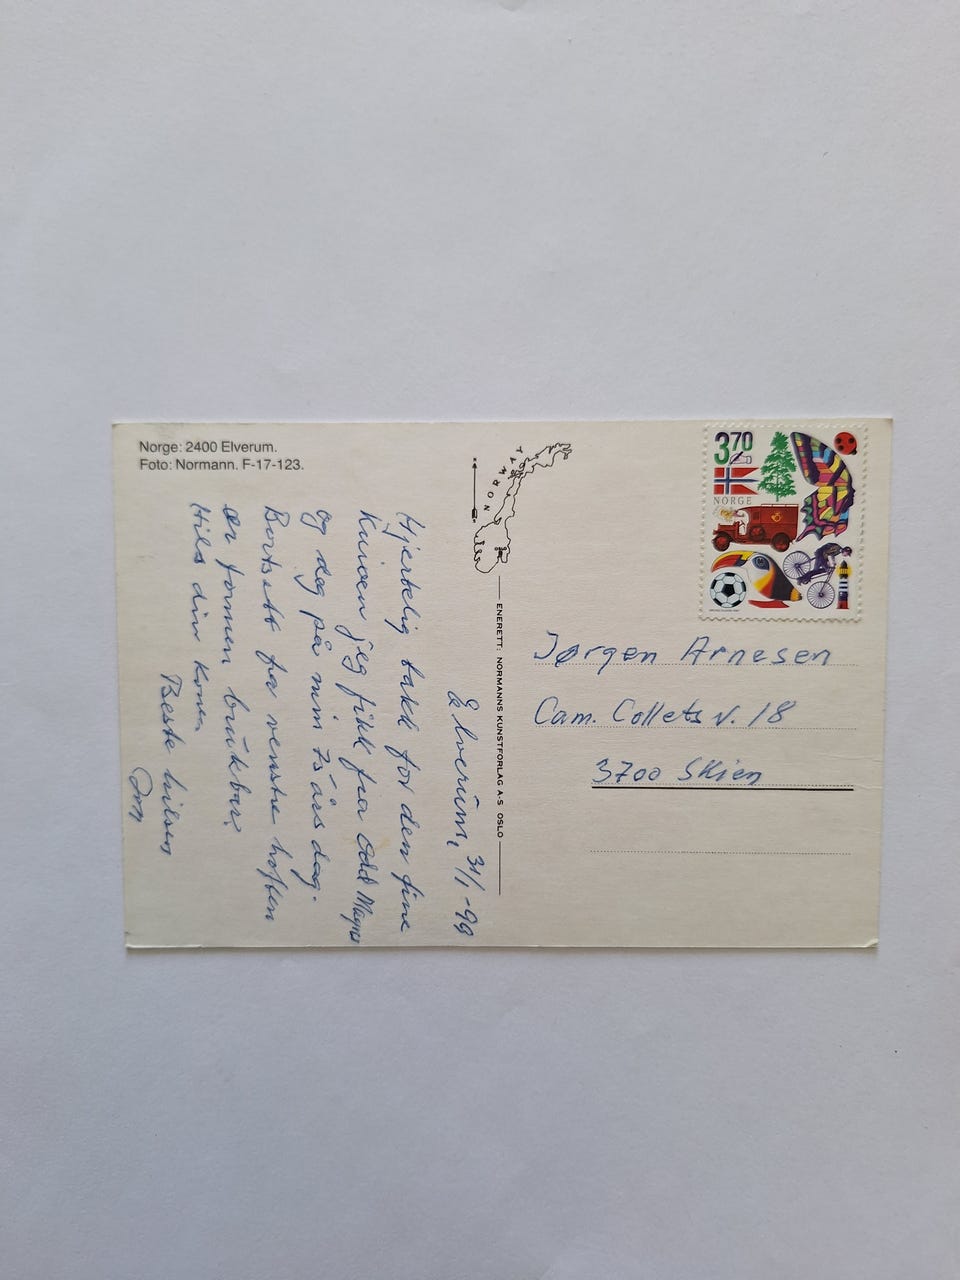 Norge: 2400 Elverum.
Foto: Normann. F-17-123.
Elverum, 31/1-99
Hjertelig takk for den fine
kurven jeg fikk fra Odd Magne
og deg på min 75 års dag.
Bortsett fra venstre hoften
er formen brukbar.
Hils din kone.
Beste hilsen
NORWAY
ENERETT: NORMANNS KUNSTFORLAG A·S OSLO
3.70
NORGE
Jørgen Arnesen
Cam. Colletts v. 18
3700 Skien